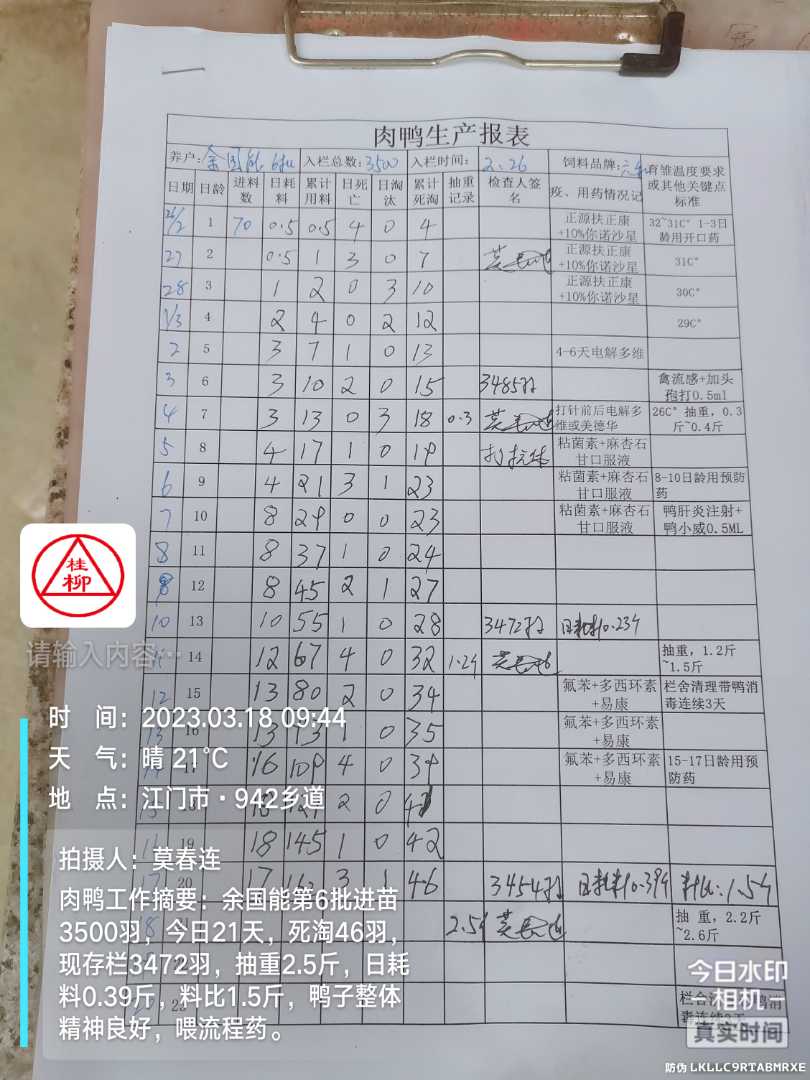 肉鸭生产报表
养户: 余国能 6批 入栏总数: 3500 入栏时间: 2.26 饲料品牌:
育雏温度要求或其他关键点标准
日期 日龄 进料数 日耗料 累计用料 日死亡 日淘汰 累计死淘 抽重记录 检查人签名 疫、用药情况记
26/2 1 70 0.5 0.5 4 0 4 正源扶正康+10%你诺沙星 32~31C° 1-3日龄用开口药
27 2 0.5 1 3 0 7 正源扶正康+10%你诺沙星 31C°
28 3 1 2 0 3 10 正源扶正康+10%你诺沙星 30C°
1/3 4 2 4 0 2 12 29C°
2 5 3 7 1 0 13 4-6天电解多维
3 6 3 10 2 0 15 3485只 禽流感+加头孢打0.5ml
4 7 3 13 0 3 18 0.3 打针前后电解多维或美德华 26C° 抽重，0.3斤~0.4斤
5 8 4 17 1 0 19 打抗体 粘菌素+麻杏石甘口服液
6 9 4 21 3 1 23 粘菌素+麻杏石甘口服液 8-10日龄用预防药
7 10 8 29 0 0 23 粘菌素+麻杏石甘口服液 鸭肝炎注射+鸭小威0.5ML
8 11 8 37 1 0 24
12 8 45 2 1 27
10 13 10 55 1 0 28 3472只 日耗料0.23斤
14 12 67 4 0 32 1.2斤 抽重，1.2斤~1.5斤
12 15 13 80 2 0 34 氟苯+多西环素+易康 栏舍清理带鸭消毒连续3天
13 16 13 1 0 35 氟苯+多西环素+易康
16 109 4 0 39 氟苯+多西环素+易康 15-17日龄用预防药
18 2 0
19 18 145 1 0 42
20 17 3 1 46 3454只 日耗料0.39斤 料比:1.5斤
18 21 2.5斤 抽 重，2.2斤~2.6斤
23
桂柳
请输入内容…
时 间：2023.03.18 09:44
天 气：晴 21℃
地 点：江门市·942乡道
拍摄人：莫春连
肉鸭工作摘要：余国能第6批进苗
3500羽，今日21天，死淘46羽，
现存栏3472羽，抽重2.5斤，日耗
料0.39斤，料比1.5斤，鸭子整体
精神良好，喂流程药。
今日水印
相机
真实时间
防伪 LKLLC9RTABMRXE